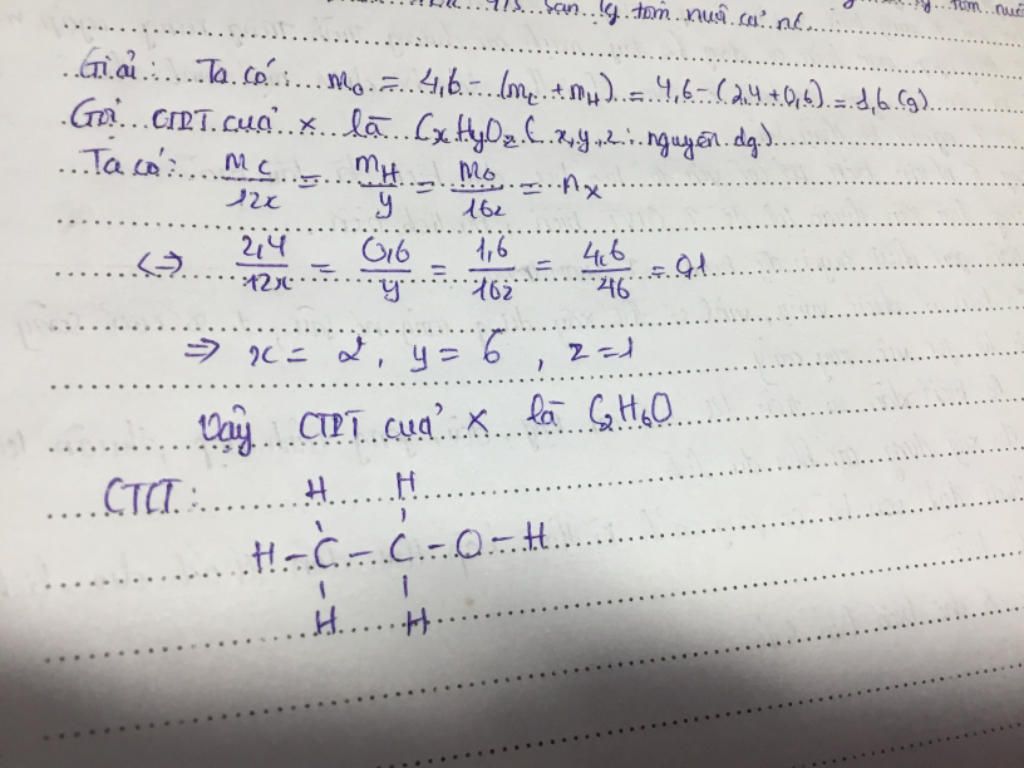 sản lg tôm nuôi cả nc
Giải: Ta có: mO = 4,6 - (mC + mH) = 4,6 - (2,4 + 0,6) = 1,6 (g)
Gọi CTPT của X là CxHyOz ( x, y, z : nguyên dg)
Ta có: mC/12x = mH/y = mO/16z = nX
<=> 2,4/12x = 0,6/y = 1,6/16z = 4,6/46 = 0,1
=> x = 2, y = 6, z = 1
Vậy CTPT của X là C2H6O
CTCT: H H
H - C - C - O - H
H H